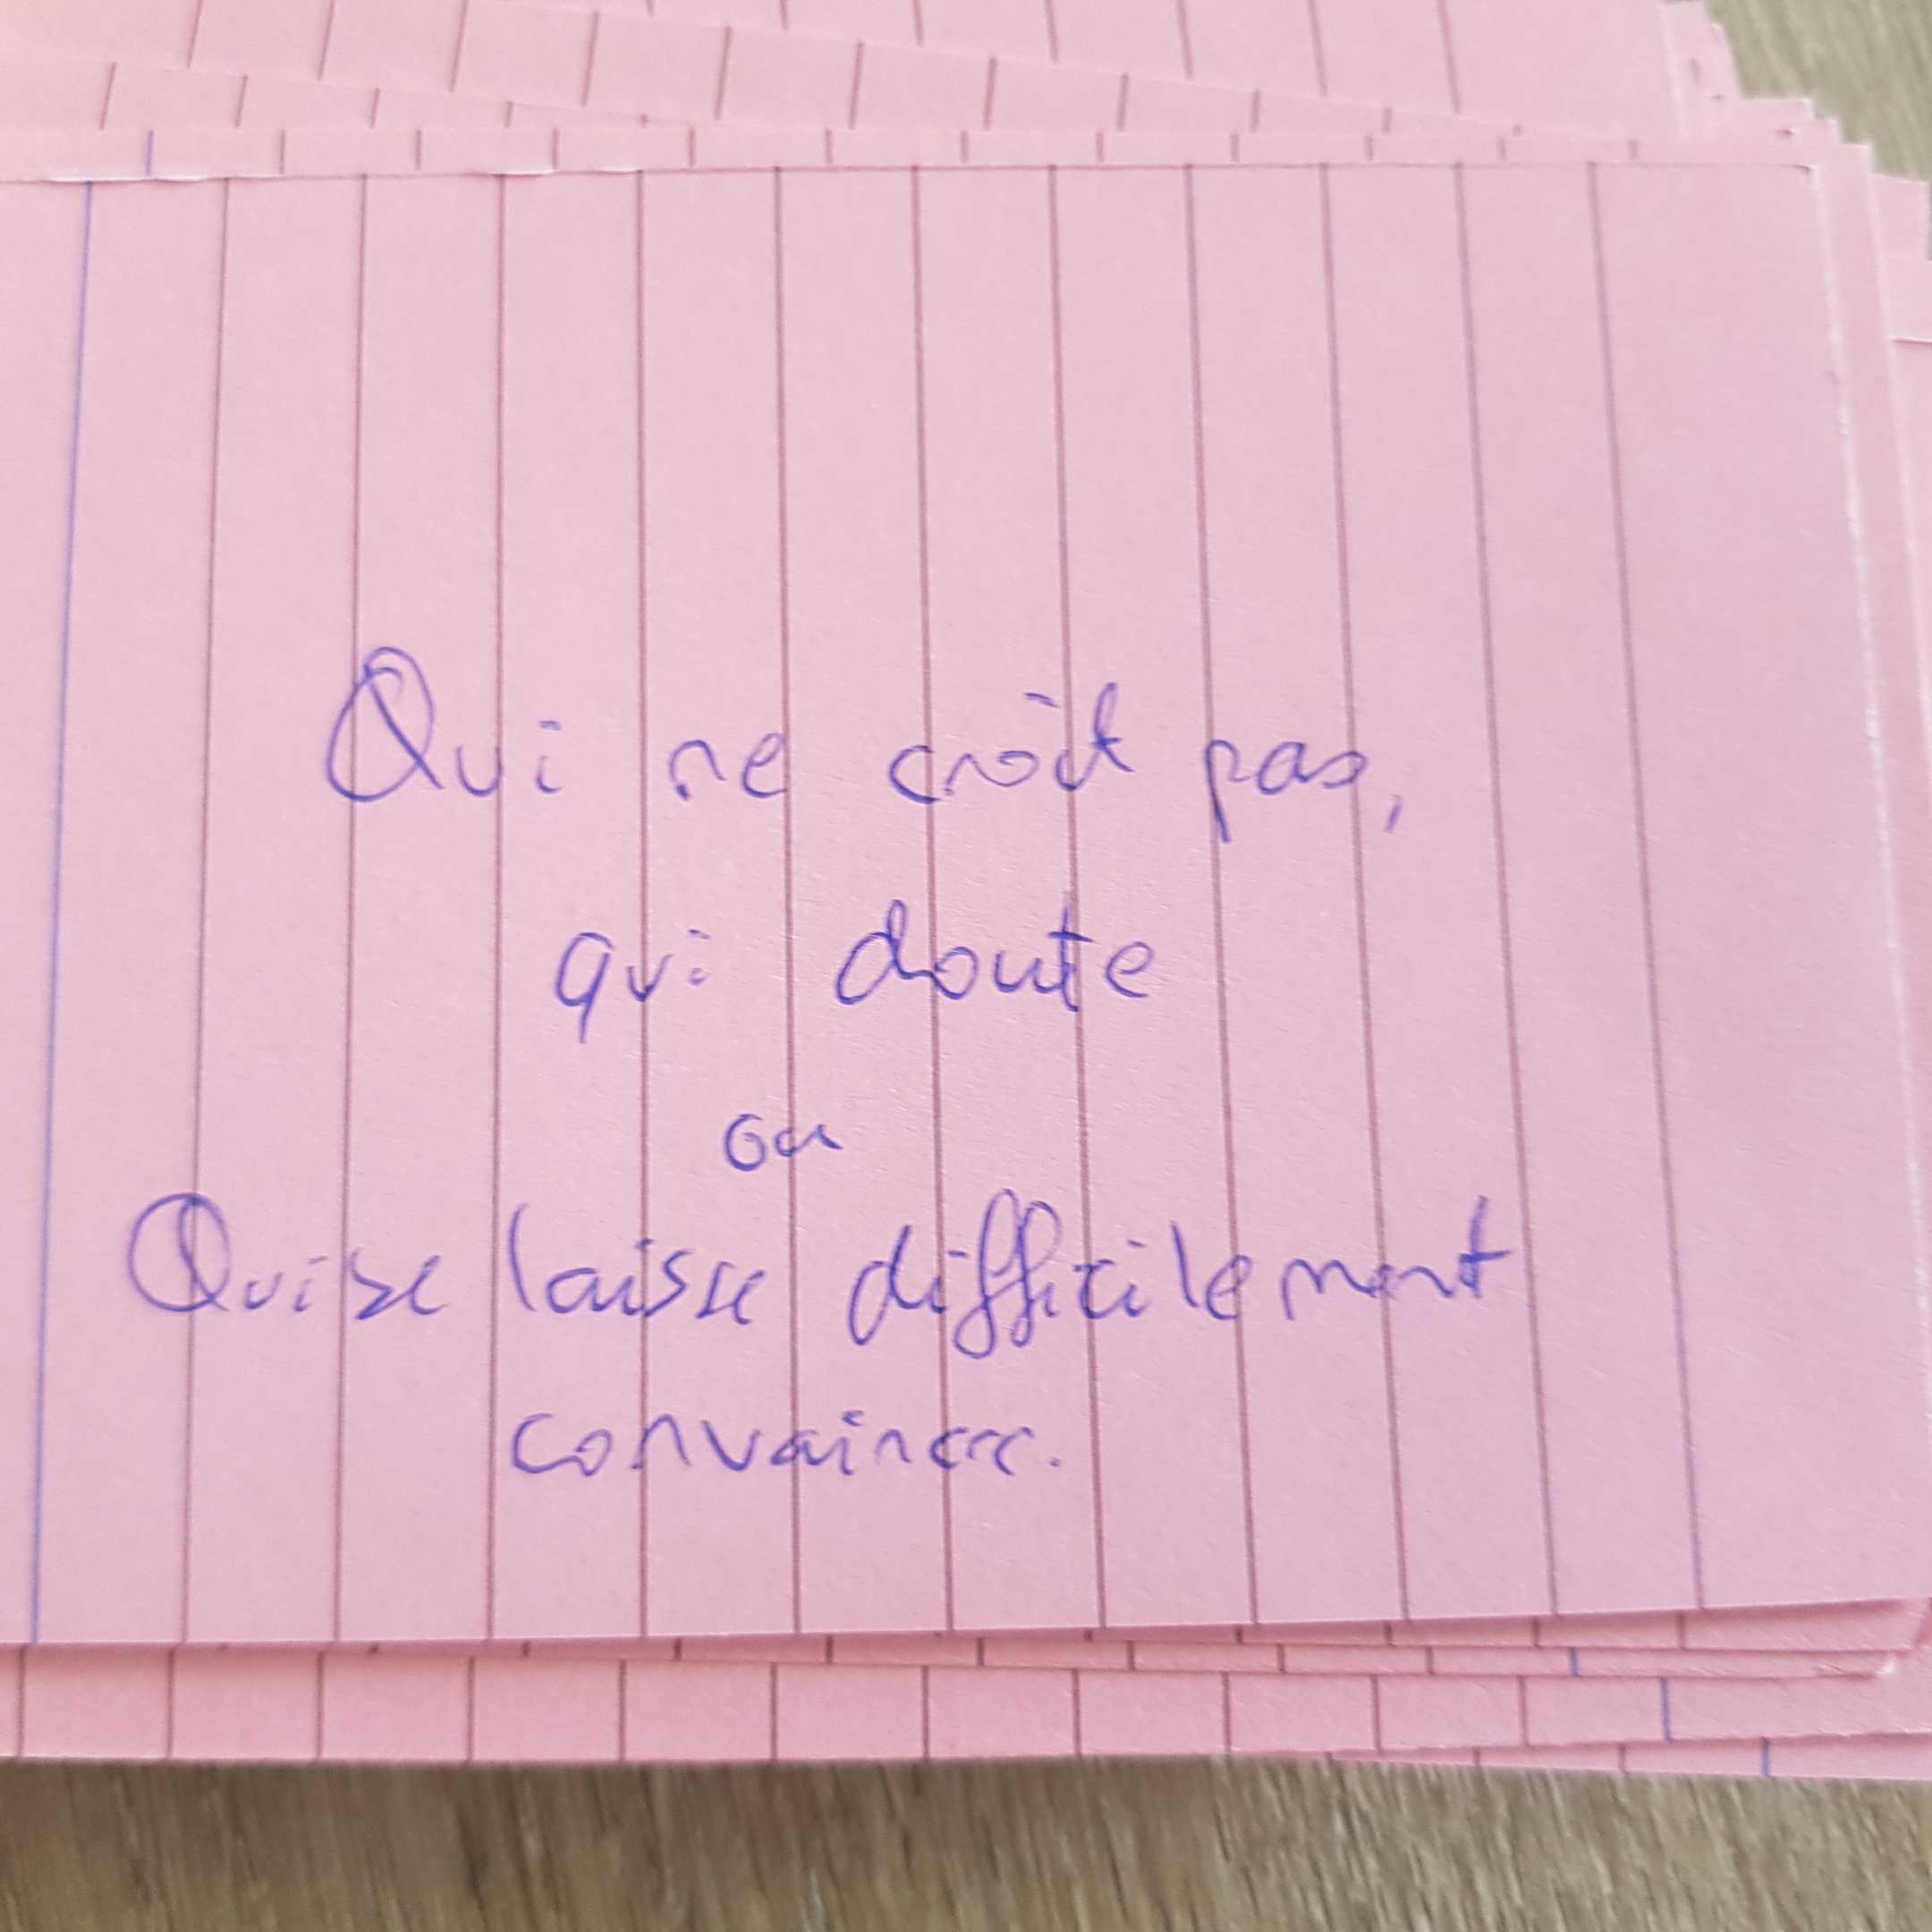 Qui ne croit pas,
qui doute
ou
Qui se laisse difficilement
convaincre.